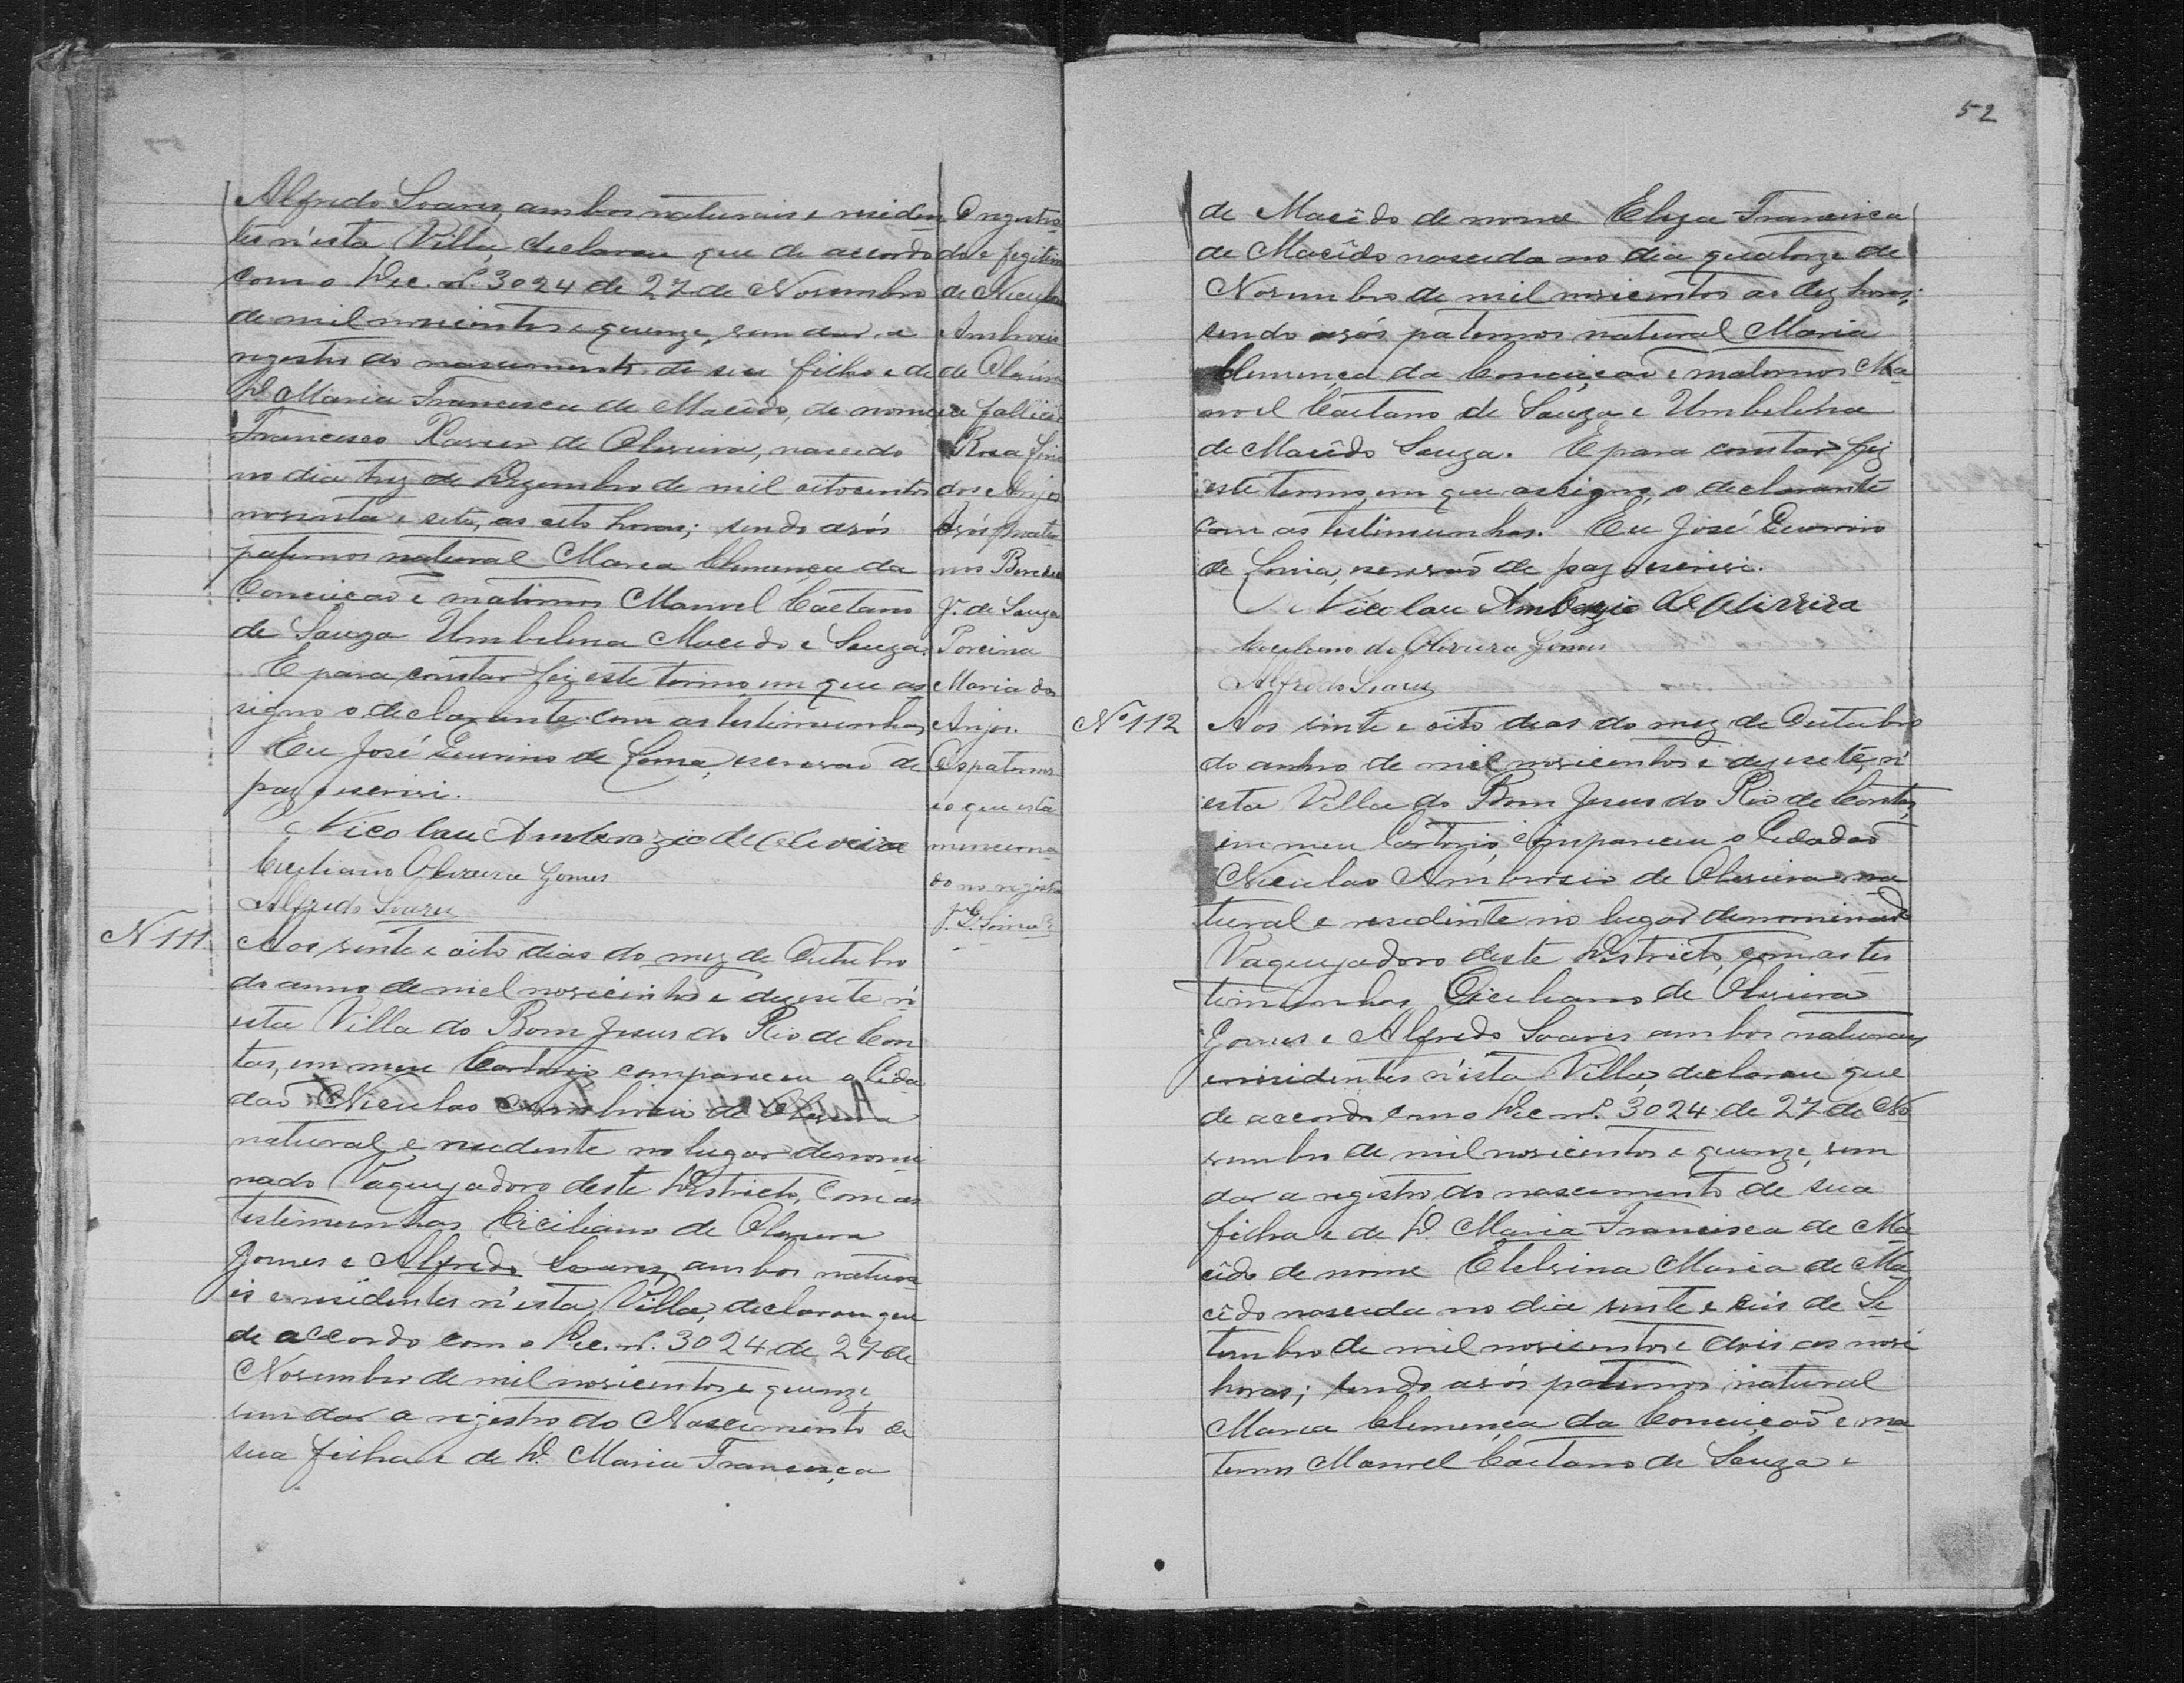 Alfredo Soares, ambos naturais e residen
tes n'esta Villa, declarou que de accordo
com o Dec. nº. 3024 de 27 de Novembro
de mil novicentos e quinze, vem dar a
registro do nascimento de seu filho e de
D. Maria Francisca de Macêdo, de nome
Francisco Xavier de Oliveira, nascido
no dia trez de Dezembro de mil oitocentos
noventa e sete, as oito horas; sendo avós
paternos natural Maria Clemença da
Conceição e maternos Manoel Caetano
de Souza Umbelina Macedo e Souza.
E para constar fiz este termo em que as
signo o declarante com as testimunhas,
Eu José Guirino de Lima, escrivão de
paz o escrivi.
Nicolau Ambrazio de Oliveira
Ciciliano Oliveira Gomes
Alfredo Soares
O registra
do e ligitimo
de Niculau
Ambrosio
de Oliveira
e a falicida
Rosalina
dos Anjos
Avós mater
nos
J. de Souza
Porcina
Maria dos
Anjos.
Os paternos
é o que está
menciona
do no registro
J. G. Lima
N 111
Aos vinte e oito dias do mez de Outubro
do anno de mil novicentos e dezesete n'
esta Villa do Bom Jesus do Rio de Con
tas, em meu Cartorio, compareceu o Cida
dão Niculao Ambrosio de Oliveira
natural e residente no lugar denomi
nado Vaquejadoro deste Districto, com as
testimunhas Ciciliano de Oliveira
Gomes e Alfredo Soares, ambos natura
es e residentes n'esta Villa, declarou que
de accordo com o Dec. nº. 3024 de 27 de
Novembro de mil novicentos e quinze,
vem dar a registro do Nascimento de
sua filha e de D. Maria Francisca
52
de Macêdo de nome Eliza Francisca
de Macêdo nascida no dia quatorze de
Novembro de mil novicentos as dez horas;
sendo avós paternos natural Maria
Clemença da Conceição e maternos Ma
noel Caetano de Souza e Umbelina
de Macêdo Souza. E para constar fiz
este termo, em que assigno, o declarante
com as testimunhas. Eu José Guirino
de Lima, escrivão de paz o escrivi.
Nicolau Ambrazio de Olivira
Ciciliano de Oliveira Gomes
Alfredo Soares
Nº 112
Aos vinte e oito dias do mez de Outubro
do anno de mil novicentos e dezesete, n'
esta Villa do Bom Jesus do Rio de Contas,
em meu Cartorio, compareceu o Cidadão
Niculao Ambrosio de Oliveira na
tural e residente no lugar denominado
Vaquejadoro deste Districto, com as tes
timunhas Ciciliano de Oliveira
Gomes e Alfredo Soares ambos naturaes
e residentes n'esta Villa, declarou que
de accordo com o Dec nº. 3024 de 27 de No
vembro de mil novicentos e quinze, vem
dar a registro do nascimento de sua
filha e de D. Maria Francisca de Ma
cêdo de nome Etelvina Maria de Ma
cêdo nascida no dia vinte e seis de Se
tembro de mil novicentos e dois as nove
horas; sendo avós paternos natural
Maria Clemença da Conceição e ma
ternos Manoel Caetano de Souza e